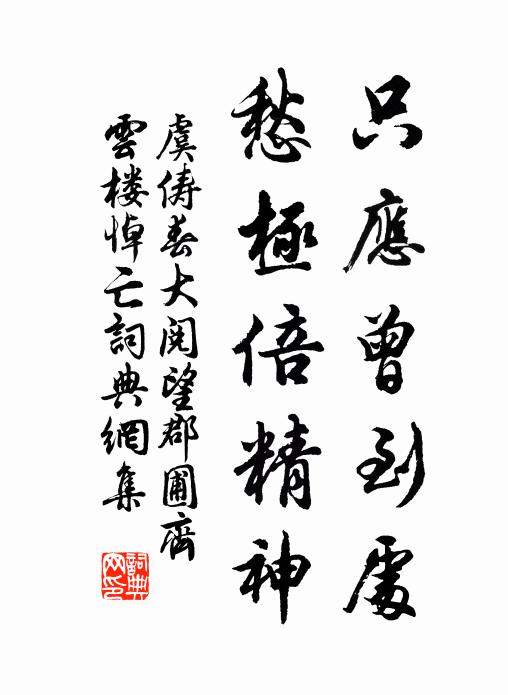 只應曾到處
愁極倍精神
虞儔春大閱望郡圃齊
雲樓悼亡詞典網集
詞典網印